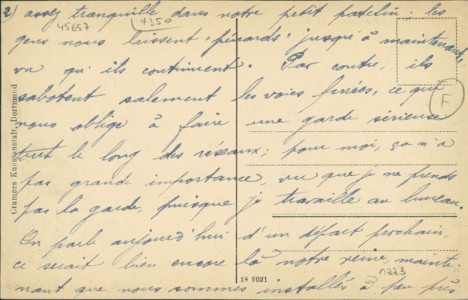 2) assez tranquille dans notre petit patelin : les
45657
4350
gens nous laissent "pénards" jusqu'à maintenant,
vu qu'ils continuent. Par contre, ils
sabotent salement les voies ferrées, ce qui
F
nous oblige à faire une garde sérieuse
tout le long des réseaux; pour moi, ça n'a
pas grande importance, vu que je ne prends
pas la garde, puisque je travaille au bureau.
On parle aujourd'hui d'un départ prochain;
ce serait bien encore là notre veine, mainte-
1223
nant que nous sommes installés à peu près
Cramers Kunstanstalt, Dortmund
18 9021